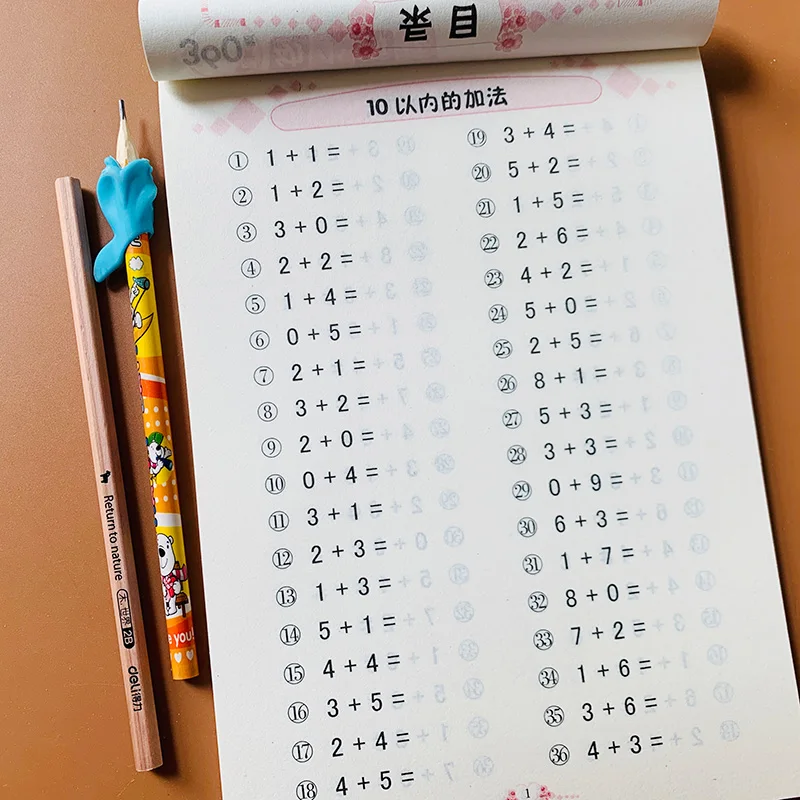 目录
10以内的加法
① 1 + 1 =
② 1 + 2 =
③ 3 + 0 =
④ 2 + 2 =
⑤ 1 + 4 =
⑥ 0 + 5 =
⑦ 2 + 1 =
⑧ 3 + 2 =
⑨ 2 + 0 =
⑩ 0 + 4 =
⑪ 3 + 1 =
⑫ 2 + 3 =
⑬ 1 + 3 =
⑭ 5 + 1 =
⑮ 4 + 4 =
⑯ 3 + 5 =
⑰ 2 + 4 =
⑱ 4 + 5 =
⑲ 3 + 4 =
⑳ 5 + 2 =
㉑ 1 + 5 =
㉒ 2 + 6 =
㉓ 4 + 2 =
㉔ 5 + 0 =
㉕ 2 + 5 =
㉖ 8 + 1 =
㉗ 5 + 3 =
㉘ 3 + 3 =
㉙ 0 + 9 =
㉚ 6 + 3 =
㉛ 1 + 7 =
㉜ 8 + 0 =
㉝ 7 + 2 =
㉞ 1 + 6 =
㉟ 3 + 6 =
㊱ 4 + 3 =
1
Return to nature
2B
deli得力
you!